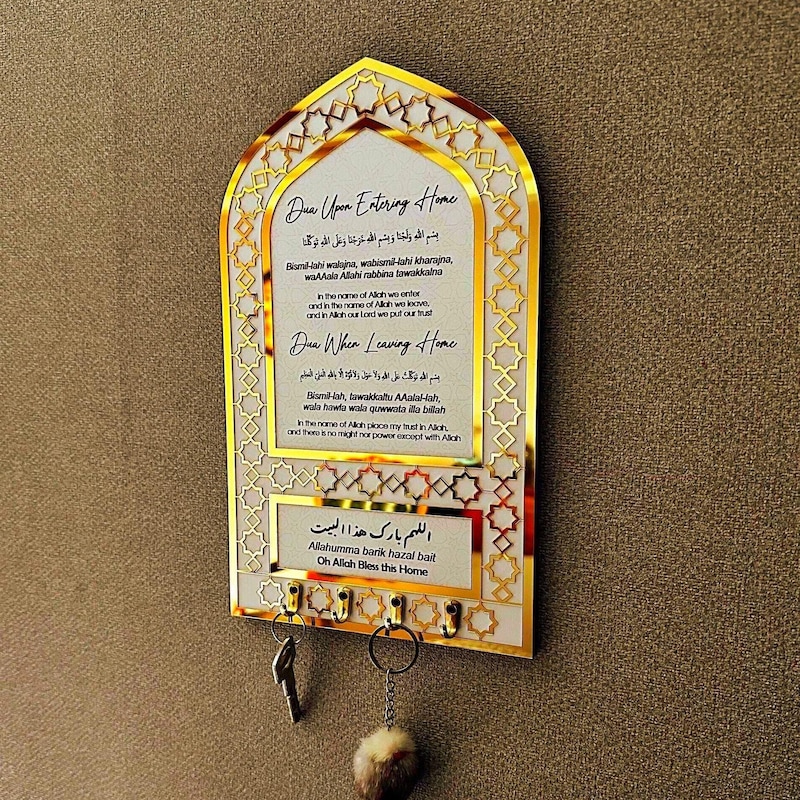 Dua Upon Entering Home
بِسْمِ اللهِ وَلَجْنَا وَ بِسْمِ اللهِ خَرَجْنَا وَعَلَى اللهِ تَوَكَّلْنَا
Bismil-lahi walajna, wabismil-lahi kharajna,
waAAala Allahi rabbina tawakkalna
In the name of Allah we enter
and in the name of Allah we leave,
and in Allah our Lord we put our trust
Dua When Leaving Home
بِسْمِ اللهِ تَوَكَّلْتُ عَلَى اللهِ وَلاَ حَوْلَ وَلاَ قُوَّةَ اِلَّا بِاللهِ الْعَلِيِّ الْعَظِيْمِ
Bismil-lah, tawakkaltu AAalal-lah,
wala hawla wala quwwata illa billah
In the name of Allah place my trust in Allah,
and there is no might nor power except with Allah
اللهم بارك هذا البيت
Allahumma barik hazal bait
Oh Allah Bless this Home